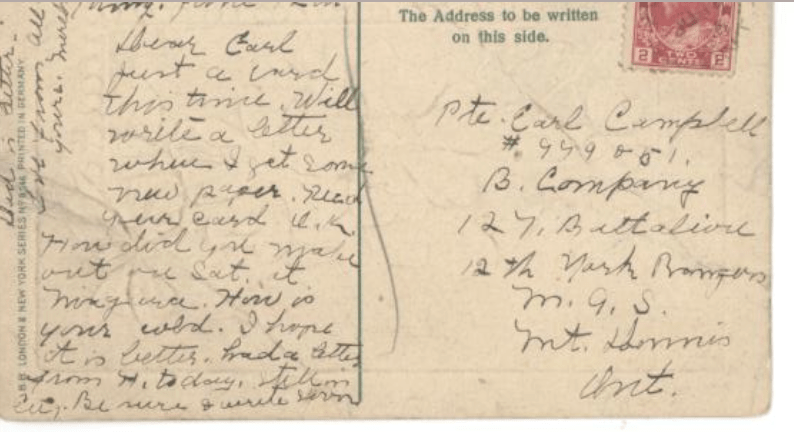 Dear Carl
just a card
this time. Will
write a letter
when I get some
new paper. Recd
your card O.K.
How did you make
out on Sat. at
Niagara. How is
your cold. I hope
it is better. had a letter
from H. today. still in
city. Be sure & write soon
Dad is better.
Love from all
yours.
B. LONDON & NEW YORK SERIES PRINTED IN GERMANY
The Address to be written
on this side.
2 TWO CENTS 2
Pte. Carl Campbell
B. Company
127. Battalion
12th York Rangers
M. G. S.
Mt. Dennis
Ont.